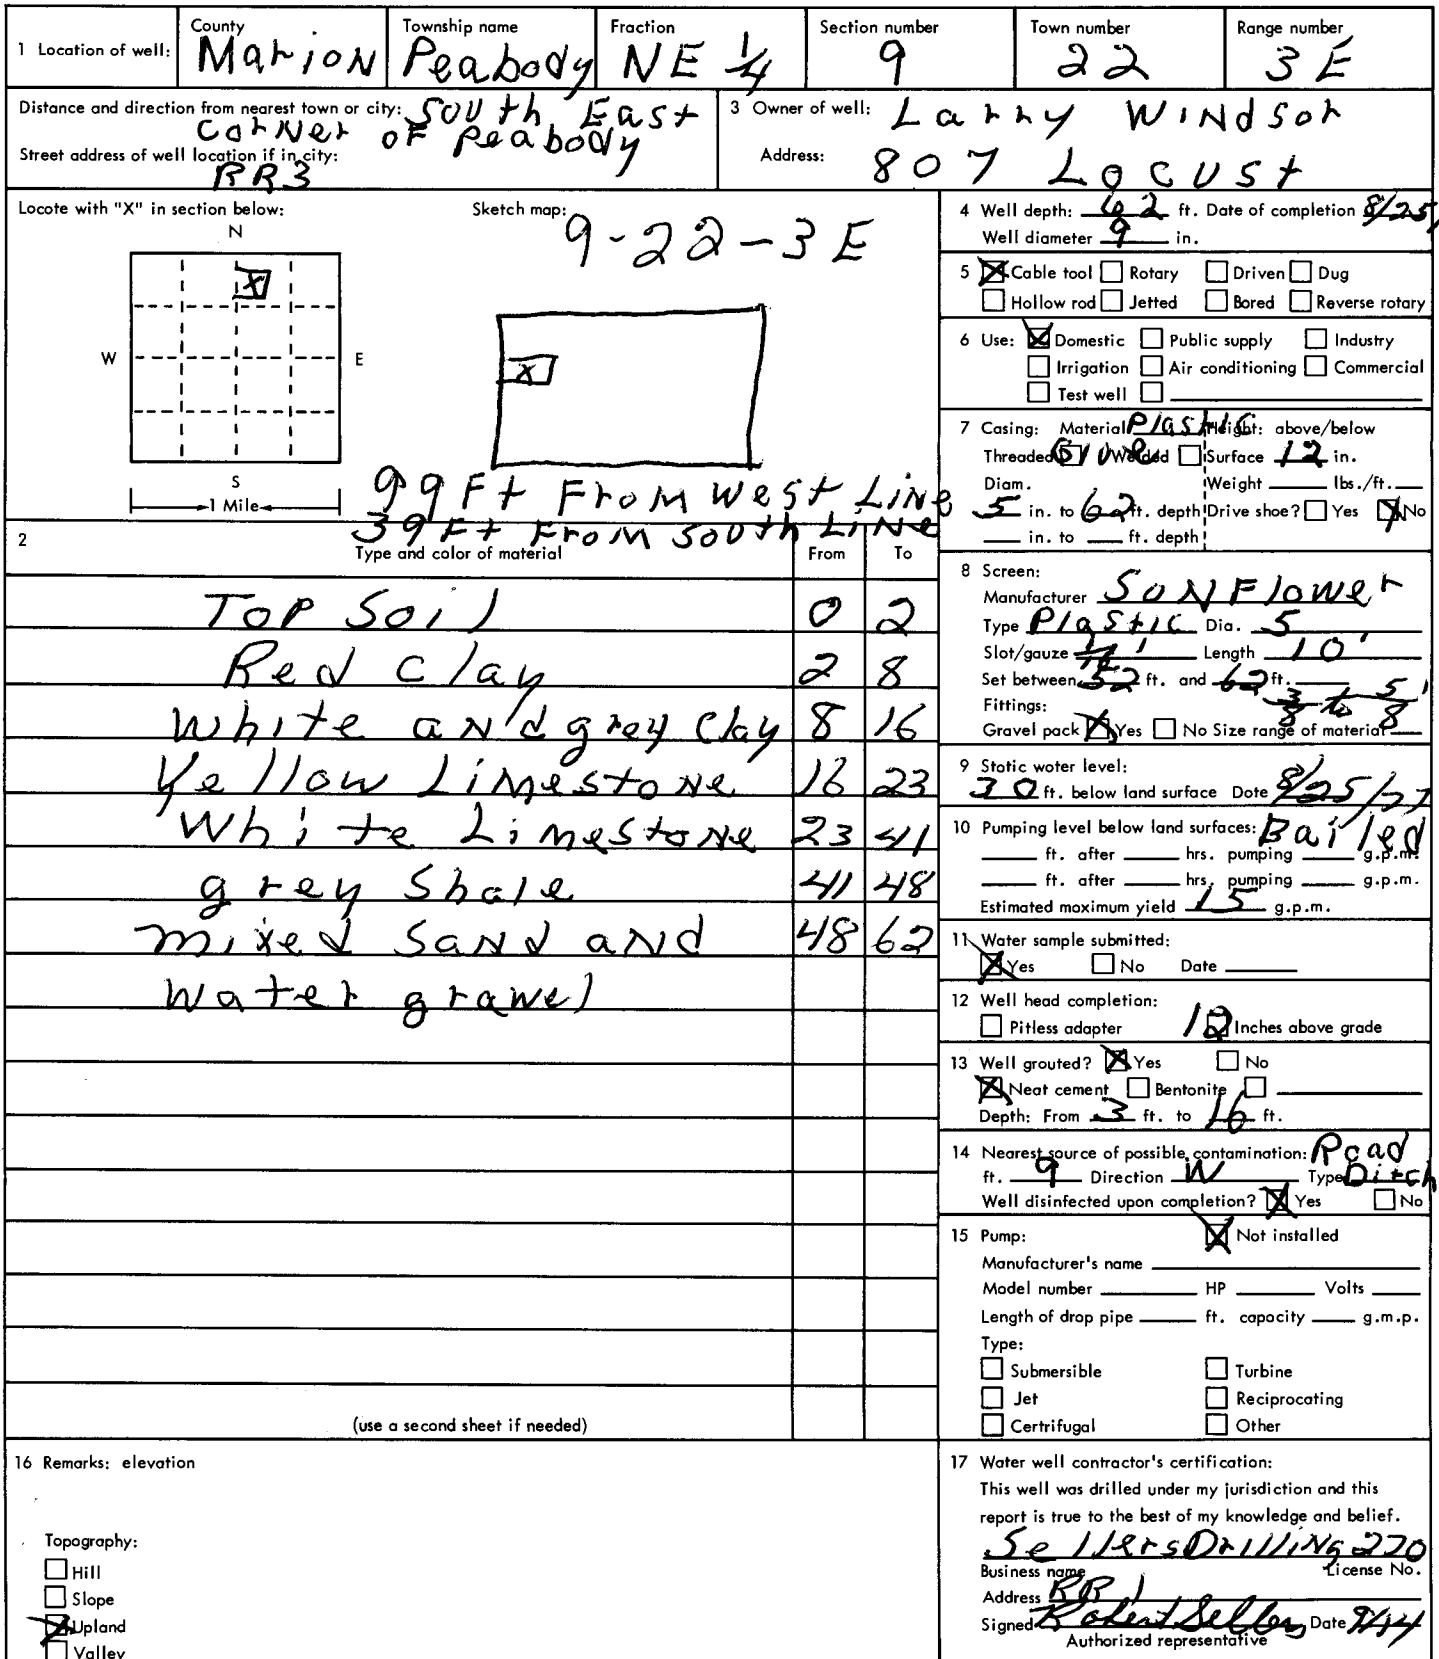 1 Location of well:
County
Marion
Township name
Peabody
Fraction
NE 1/4
Section number
9
Town number
22
Range number
3 E
Distance and direction from nearest town or city: South East
corner of Peabody
Street address of well location if in city:
RR3
3 Owner of well: Larry Windsor
Address: 807 Locust
Locate with "X" in section below:
N
W
E
S
1 Mile
X
Sketch map:
9-22-3E
X
99 Ft From West Line
39 Ft From South Line
2
Type and color of material From To
Top Soil 0 2
Red Clay 2 8
White and grey Clay 8 16
Yellow Limestone 16 23
White Limestone 23 41
grey Shale 41 48
mixed Sand and 48 62
Water gravel
(use a second sheet if needed)
4 Well depth: 62 ft. Date of completion 8/25/
Well diameter 9 in.
5 Cable tool Rotary Driven Dug
Hollow rod Jetted Bored Reverse rotary
6 Use: Domestic Public supply Industry
Irrigation Air conditioning Commercial
Test well
7 Casing: Material Plastic Height: above/below
Threaded Glued Welded Surface 12 in.
Diam. Weight lbs./ft.
5 in. to 62 ft. depth Drive shoe? Yes No
in. to ft. depth
8 Screen:
Manufacturer SunFlower
Type Plastic Dia. 5
Slot/gauze Length 10'
Set between 52 ft. and 62 ft.
Fittings: 3/8 to 5/8
Gravel pack Yes No Size range of material
9 Static water level:
30 ft. below land surface Date 8/25/77
10 Pumping level below land surfaces: Bailed
ft. after hrs. pumping g.p.m.
ft. after hrs. pumping g.p.m.
Estimated maximum yield 15 g.p.m.
11 Water sample submitted:
Yes No Date
12 Well head completion:
Pitless adapter 12 Inches above grade
13 Well grouted? Yes No
Neat cement Bentonite
Depth: From 3 ft. to 16 ft.
14 Nearest source of possible contamination: Road
ft. 9 Direction W Type Ditch
Well disinfected upon completion? Yes No
15 Pump: Not installed
Manufacturer's name
Model number HP Volts
Length of drop pipe ft. capacity g.m.p.
Type:
Submersible Turbine
Jet Reciprocating
Certrifugal Other
16 Remarks: elevation
Topography:
Hill
Slope
Upland
Valley
17 Water well contractor's certification:
This well was drilled under my jurisdiction and this
report is true to the best of my knowledge and belief.
Sellers Drilling 270
Business name License No.
Address RR 1
Signed Robert Sellers Date 9/14
Authorized representative